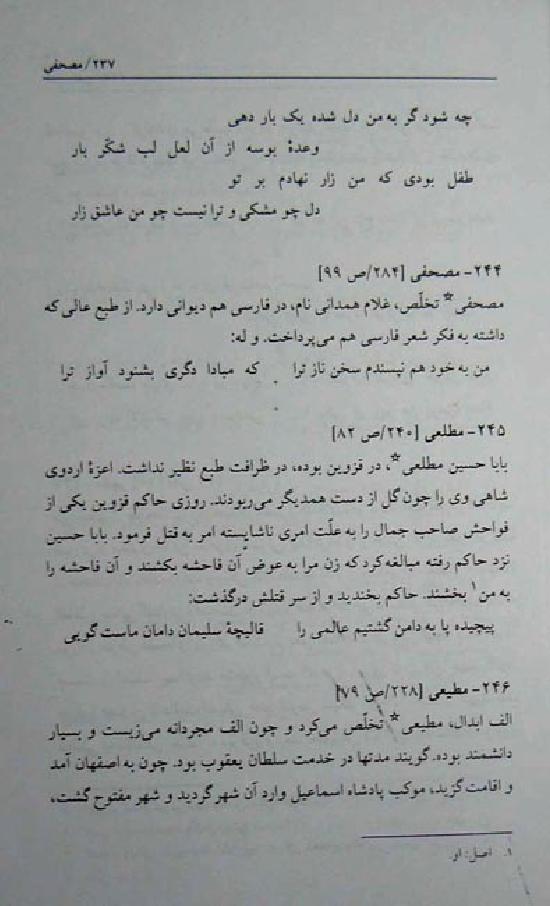 ۲۳۷/ مصحفی
چه شود گر به من دل شده یک بار دهی
وعدهٔ بوسه از آن لعل لب شکّر بار
طفل بودی که من زار نهادم بر تو
دل چو مشکی و ترا نیست چو من عاشق زار
۲۴۴- مصحفی [۲۸۴/ص ۹۹]
مصحفی* تخلّص، غلام همدانی نام، در فارسی هم دیوانی دارد. از طبع عالی که
داشته به فکر شعر فارسی هم می‌پرداخت. و له:
من به خود هم نپسندم سخن ناز ترا که مبادا دگری بشنود آواز ترا
۲۴۵- مطلعی [۲۴۰/ص ۸۲]
بابا حسین مطلعی*، در قزوین بوده، در ظرافت طبع نظیر نداشت. اعزهٔ اردوی
شاهی وی را چون گل از دست همدیگر می‌ربودند. روزی حاکم قزوین یکی از
فواحش صاحب جمال را به علّت امری ناشایسته امر به قتل فرمود. بابا حسین
نزد حاکم رفته مبالغه کرد که زن مرا به عوض آن فاحشه بکشند و آن فاحشه را
به من۱ بخشند. حاکم بخندید و از سر قتلش درگذشت:
پیچیده پا به دامن گشتیم عالمی را قالیچهٔ سلیمان دامان ماست گویی
۲۴۶- مطیعی [۲۲۸/ص ۷۹]
الف ابدال، مطیعی* تخلّص می‌کرد و چون الف مجردانه می‌زیست و بسیار
دانشمند بوده. گویند مدتها در خدمت سلطان یعقوب بود. چون به اصفهان آمد
و اقامت گزید، موکب پادشاه اسماعیل وارد آن شهر گردید و شهر مفتوح گشت،
۱. اصل: او.